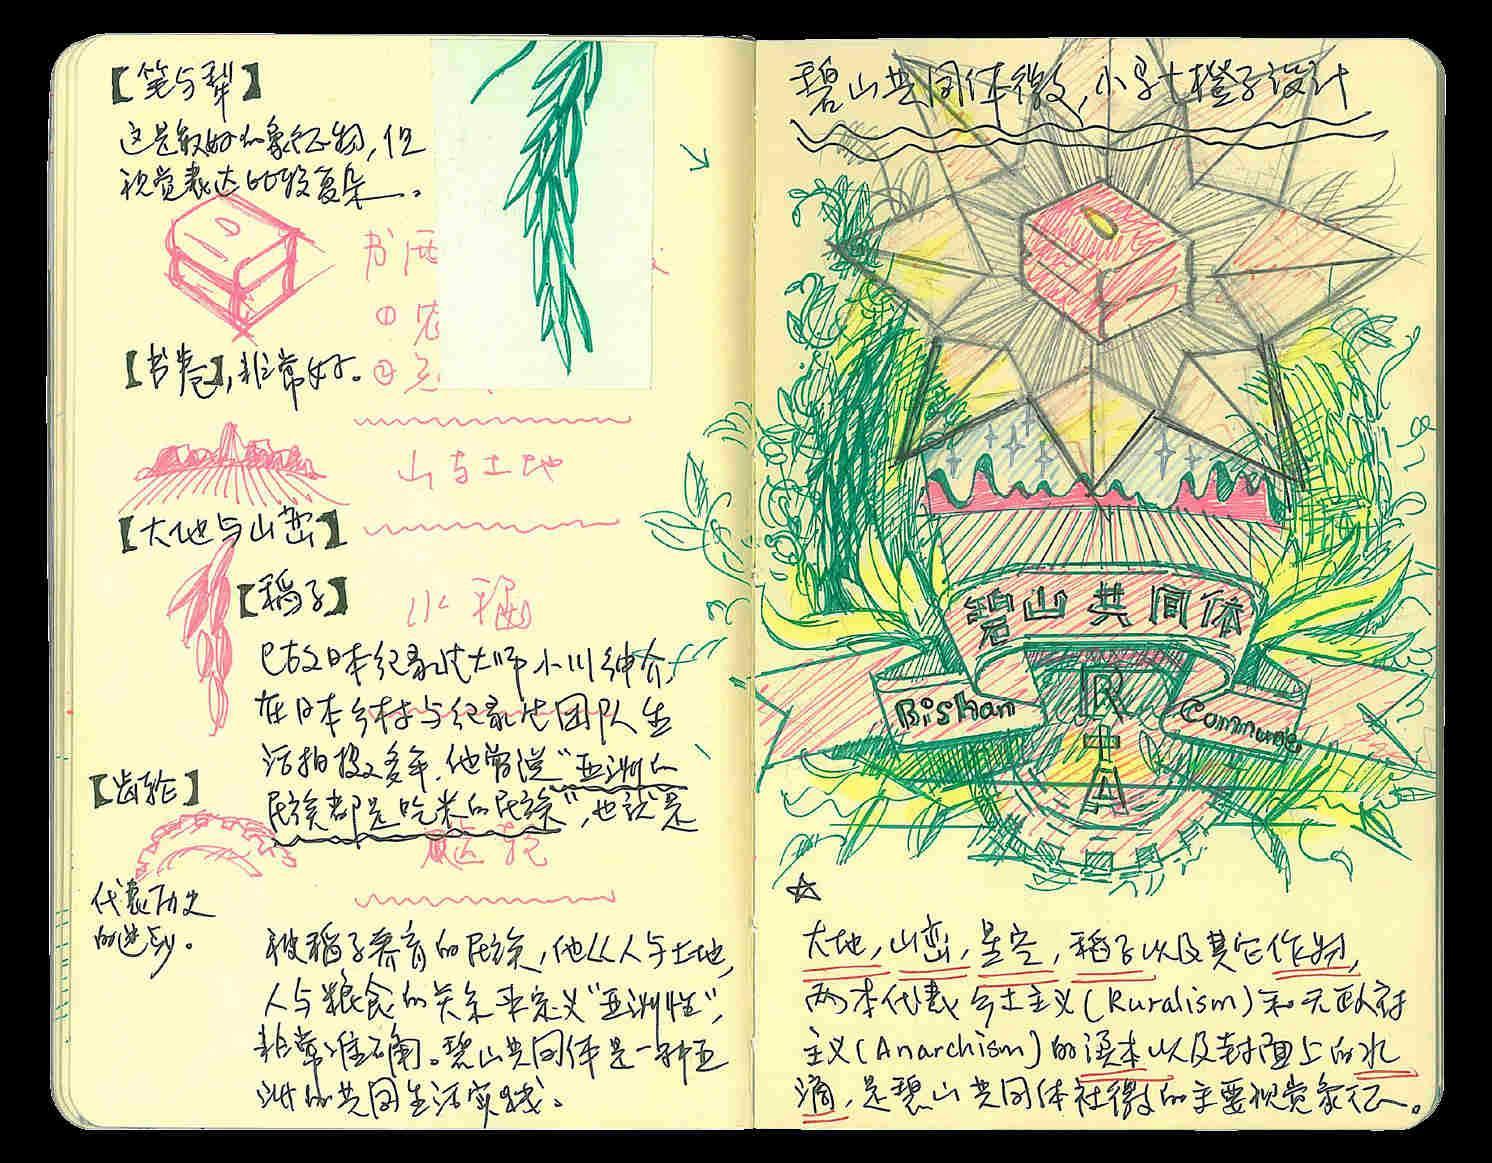 【笔与犁】
这是最好的象征物,但
视觉表达比较复杂。
书
①农
②
【书卷】,非常好。
山与土地
【大地与山峦】
【稻子】
水稻
已故日本纪录片大师小川绅介,
在日本乡村与纪录片团队生
活拍摄多年,他常说“亚洲的
民族都是吃米的民族”,也就是
【齿轮】
代表历史
的进步。
被稻子养育的民族,他从人与土地,
人与粮食的关系来定义“亚洲性”,
非常准确。碧山共同体是一种亚
洲的共同生活实践。
碧山共同体徽,小马+橙子设计
碧山共同体
Bishan
Commune
R
+
A
☆
大地,山峦,星空,稻子以及其它作物,
两本代表乡土主义(Ruralism)和无政府
主义(Anarchism)的读本以及封面上的水
滴,是碧山共同体社徽的主要视觉象征。